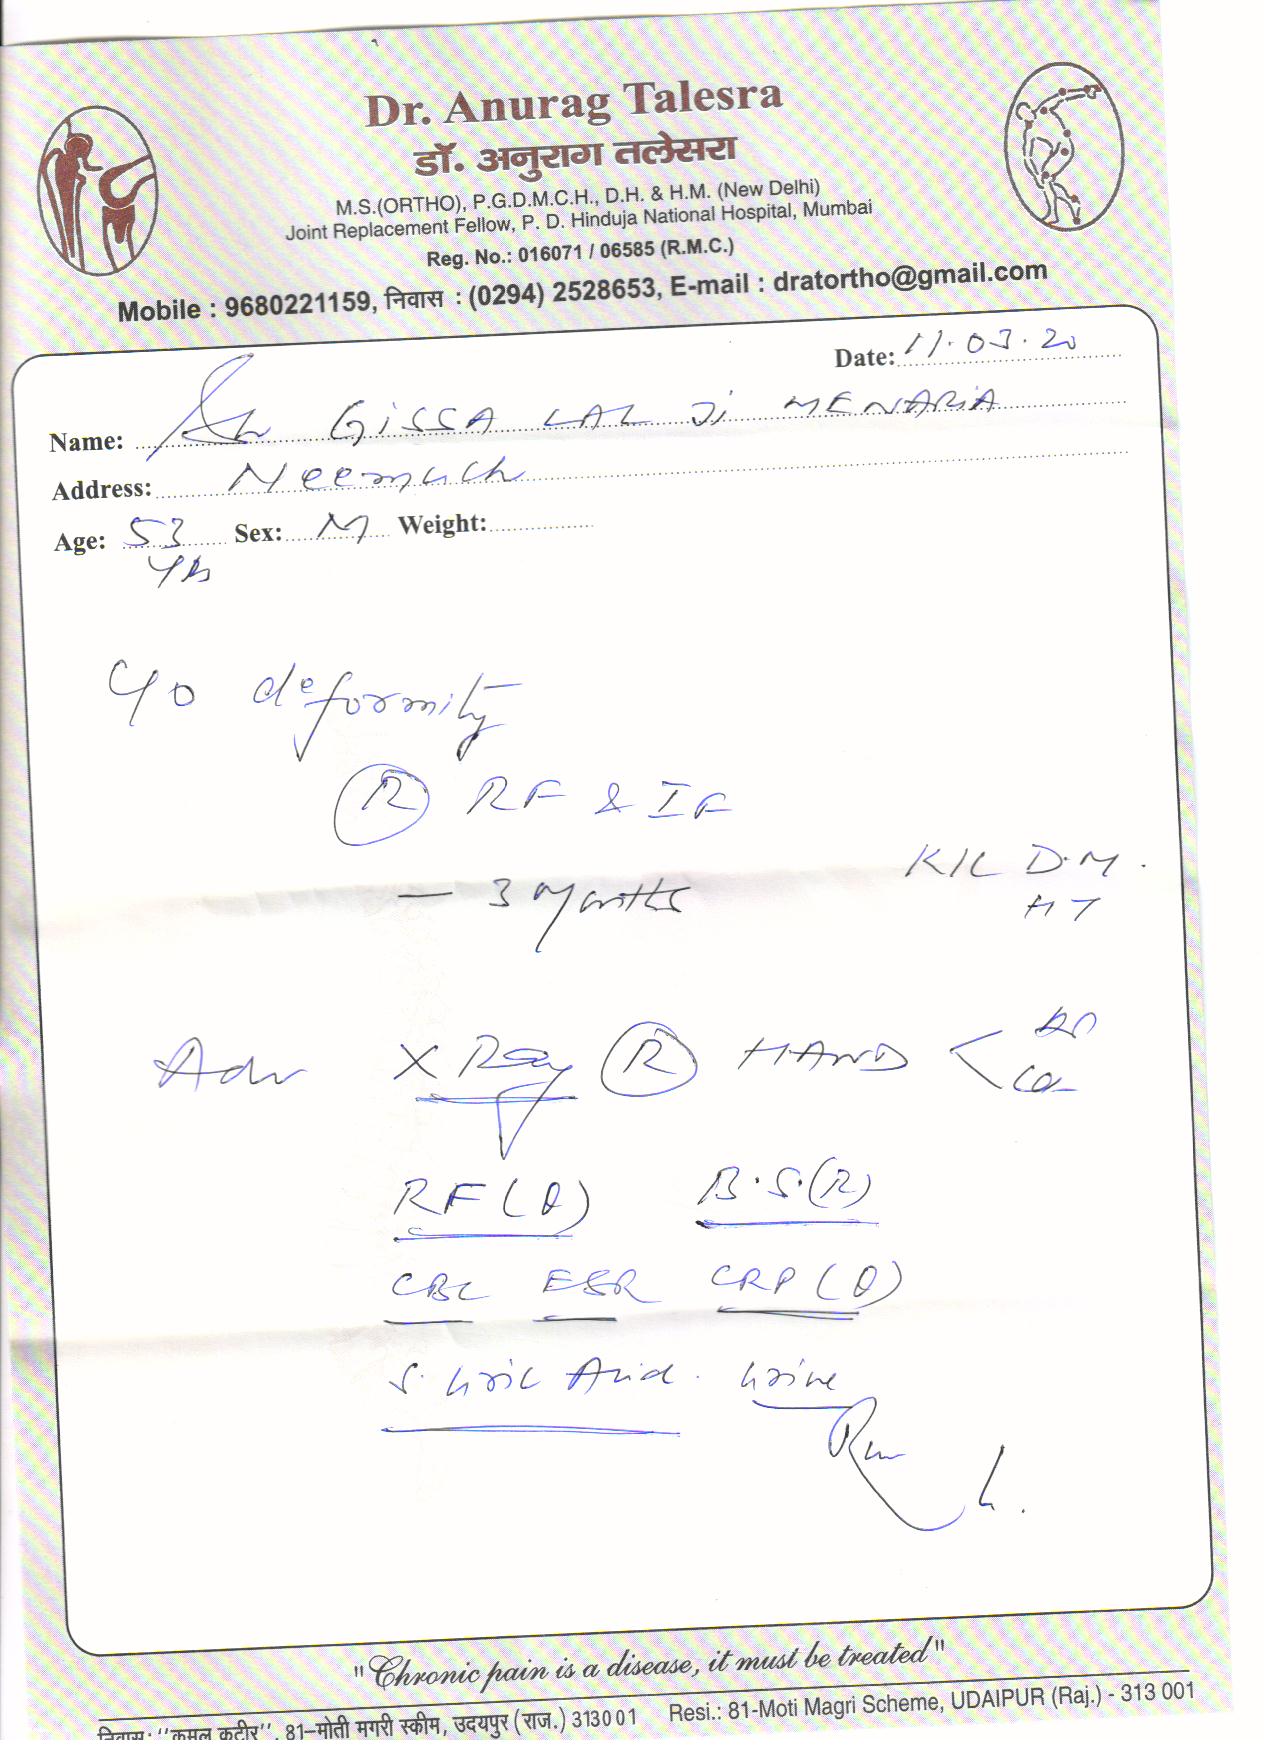 Dr. Anurag Talesra
डॉ. अनुराग तलेसरा
M.S.(ORTHO), P.G.D.M.C.H., D.H. & H.M. (New Delhi)
Joint Replacement Fellow, P. D. Hinduja National Hospital, Mumbai
Reg. No.: 016071 / 06585 (R.M.C.)
Mobile : 9680221159, निवास : (0294) 2528653, E-mail : dratortho@gmail.com
Date: 11.03.20
Name: GISSA LAL Ji MENARIA
Address: Neemuch
Age: 53 Sex: M Weight:
Yrs
C/O deformity
R RF & IF
- 3 Months
K/C D.M.
HT
Adv X Ray R HAND
RF (Q) B.S.(R)
CBC ESR CRP (Q)
S. Uric Acid. Urine
"Chronic pain is a disease, it must be treated"
निवास: "कमल कुटीर", 81-मोती मगरी स्कीम, उदयपुर (राज.) 313001 Resi.: 81-Moti Magri Scheme, UDAIPUR (Raj.) - 313 001